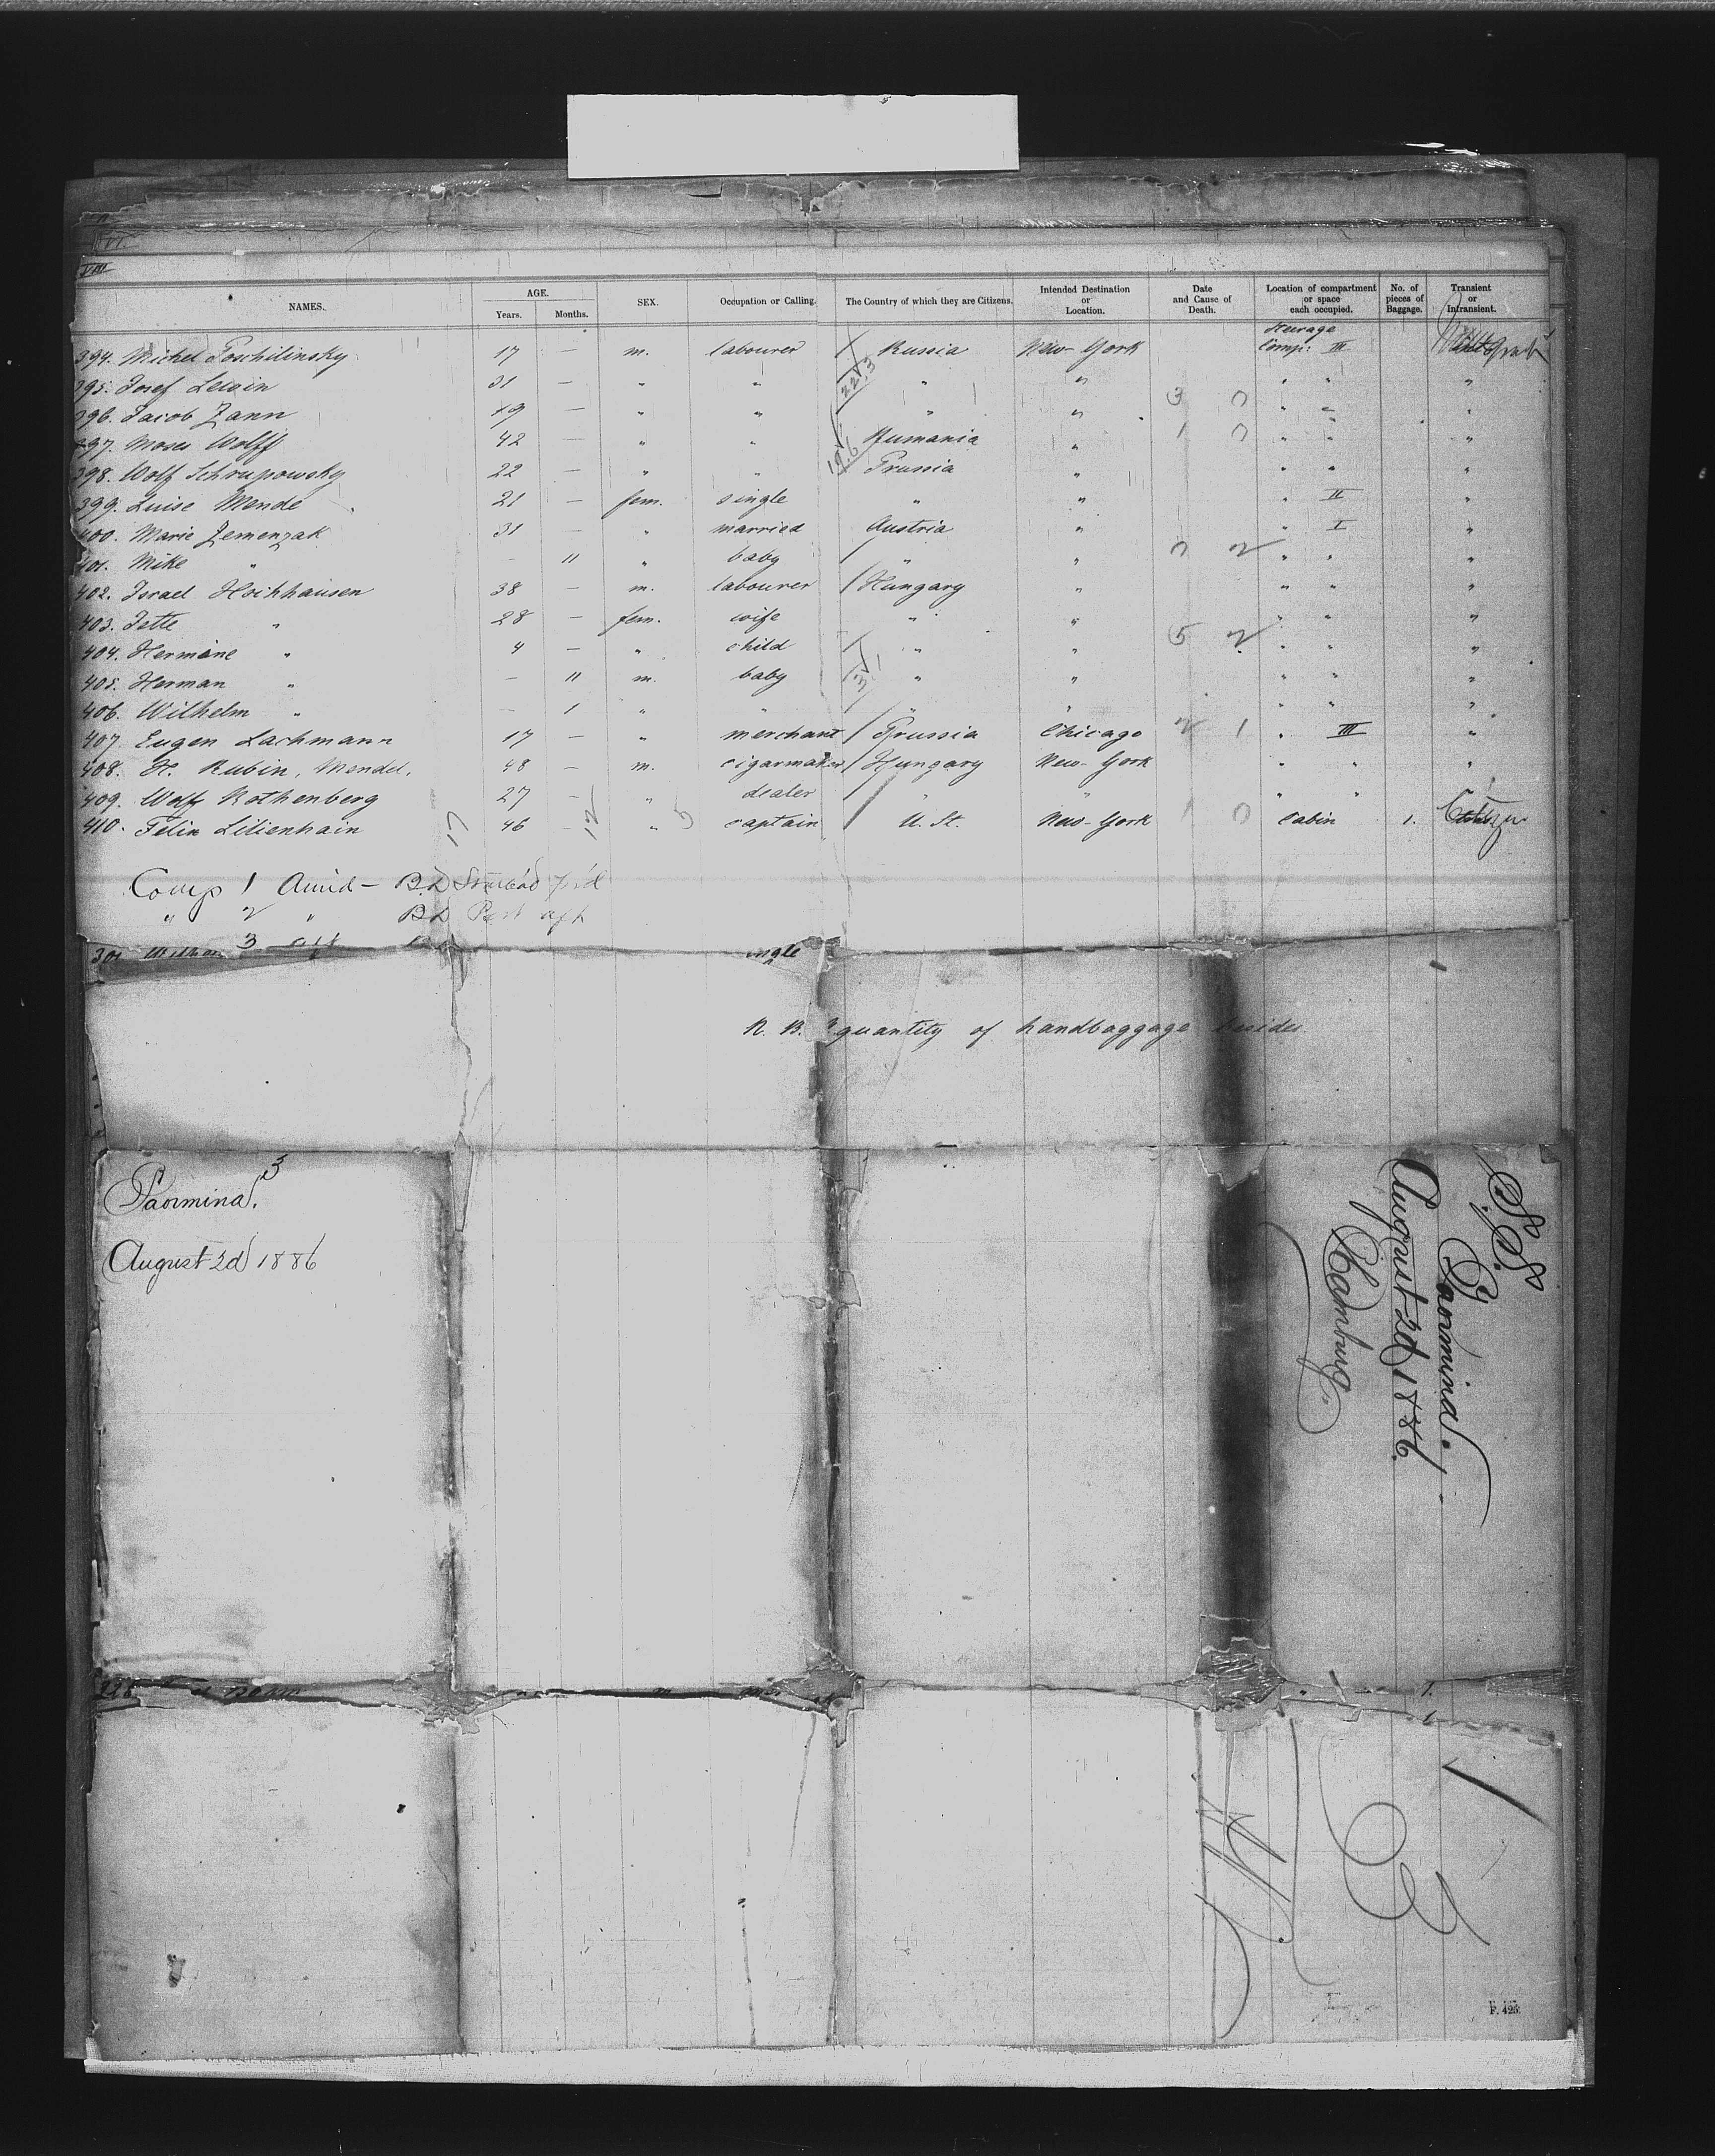 VIII
NAMES. AGE. Years. Months. SEX. Occupation or Calling. The Country of which they are Citizens. Intended Destination or Location. Date and Cause of Death. Location of compartment or space each occupied. No. of pieces of Baggage. Transient or Intransient.
Steerage
394. Michel Poschilinsky 17 — m. labourer Russia New-York Comp: III
395. Josef Lewin 31 — " " " " " " "
396. Jacob Zann 19 — " " " " 3 0 " " "
397. Moses Wolff 42 — " " Rumania " 1 0 " " "
398. Wolf Schrupowsky 22 — " " Prussia " " " "
399. Luise Mende 21 — fem. single " " " II "
400. Marie Zemenzak 31 — " married Austria " " I "
401. Mike " — 11 " baby " " 0 2 " " "
402. Israel Hochhausen 38 — m. labourer Hungary " " " "
403. Jette " 28 — fem. wife " " " " "
404. Hermine " 4 — " child " " 5 2 " " "
405. Herman " — 11 m. baby " " " " "
406. Wilhelm " — 1 " " " " " " "
407. Eugen Lachmann 17 — " merchant Prussia Chicago 2 1 " III "
408. H. Rubin, Mendel. 48 — m. cigarmaker Hungary New-York " " "
409. Wolf Rothenberg 27 — " dealer " " " "
410. Felix Lilienhain 46 — " captain U. St. New-York 1 0 Cabin 1. Citizen
17 12 5
Comp 1 Amid —
" 2 " Port aft
3 aft
N. B. quantity of handbaggage besides.
Taormina. 3
August 2d 1886
S.S. Taormina.
August 2d 1886.
Hamburg.
F. 425.